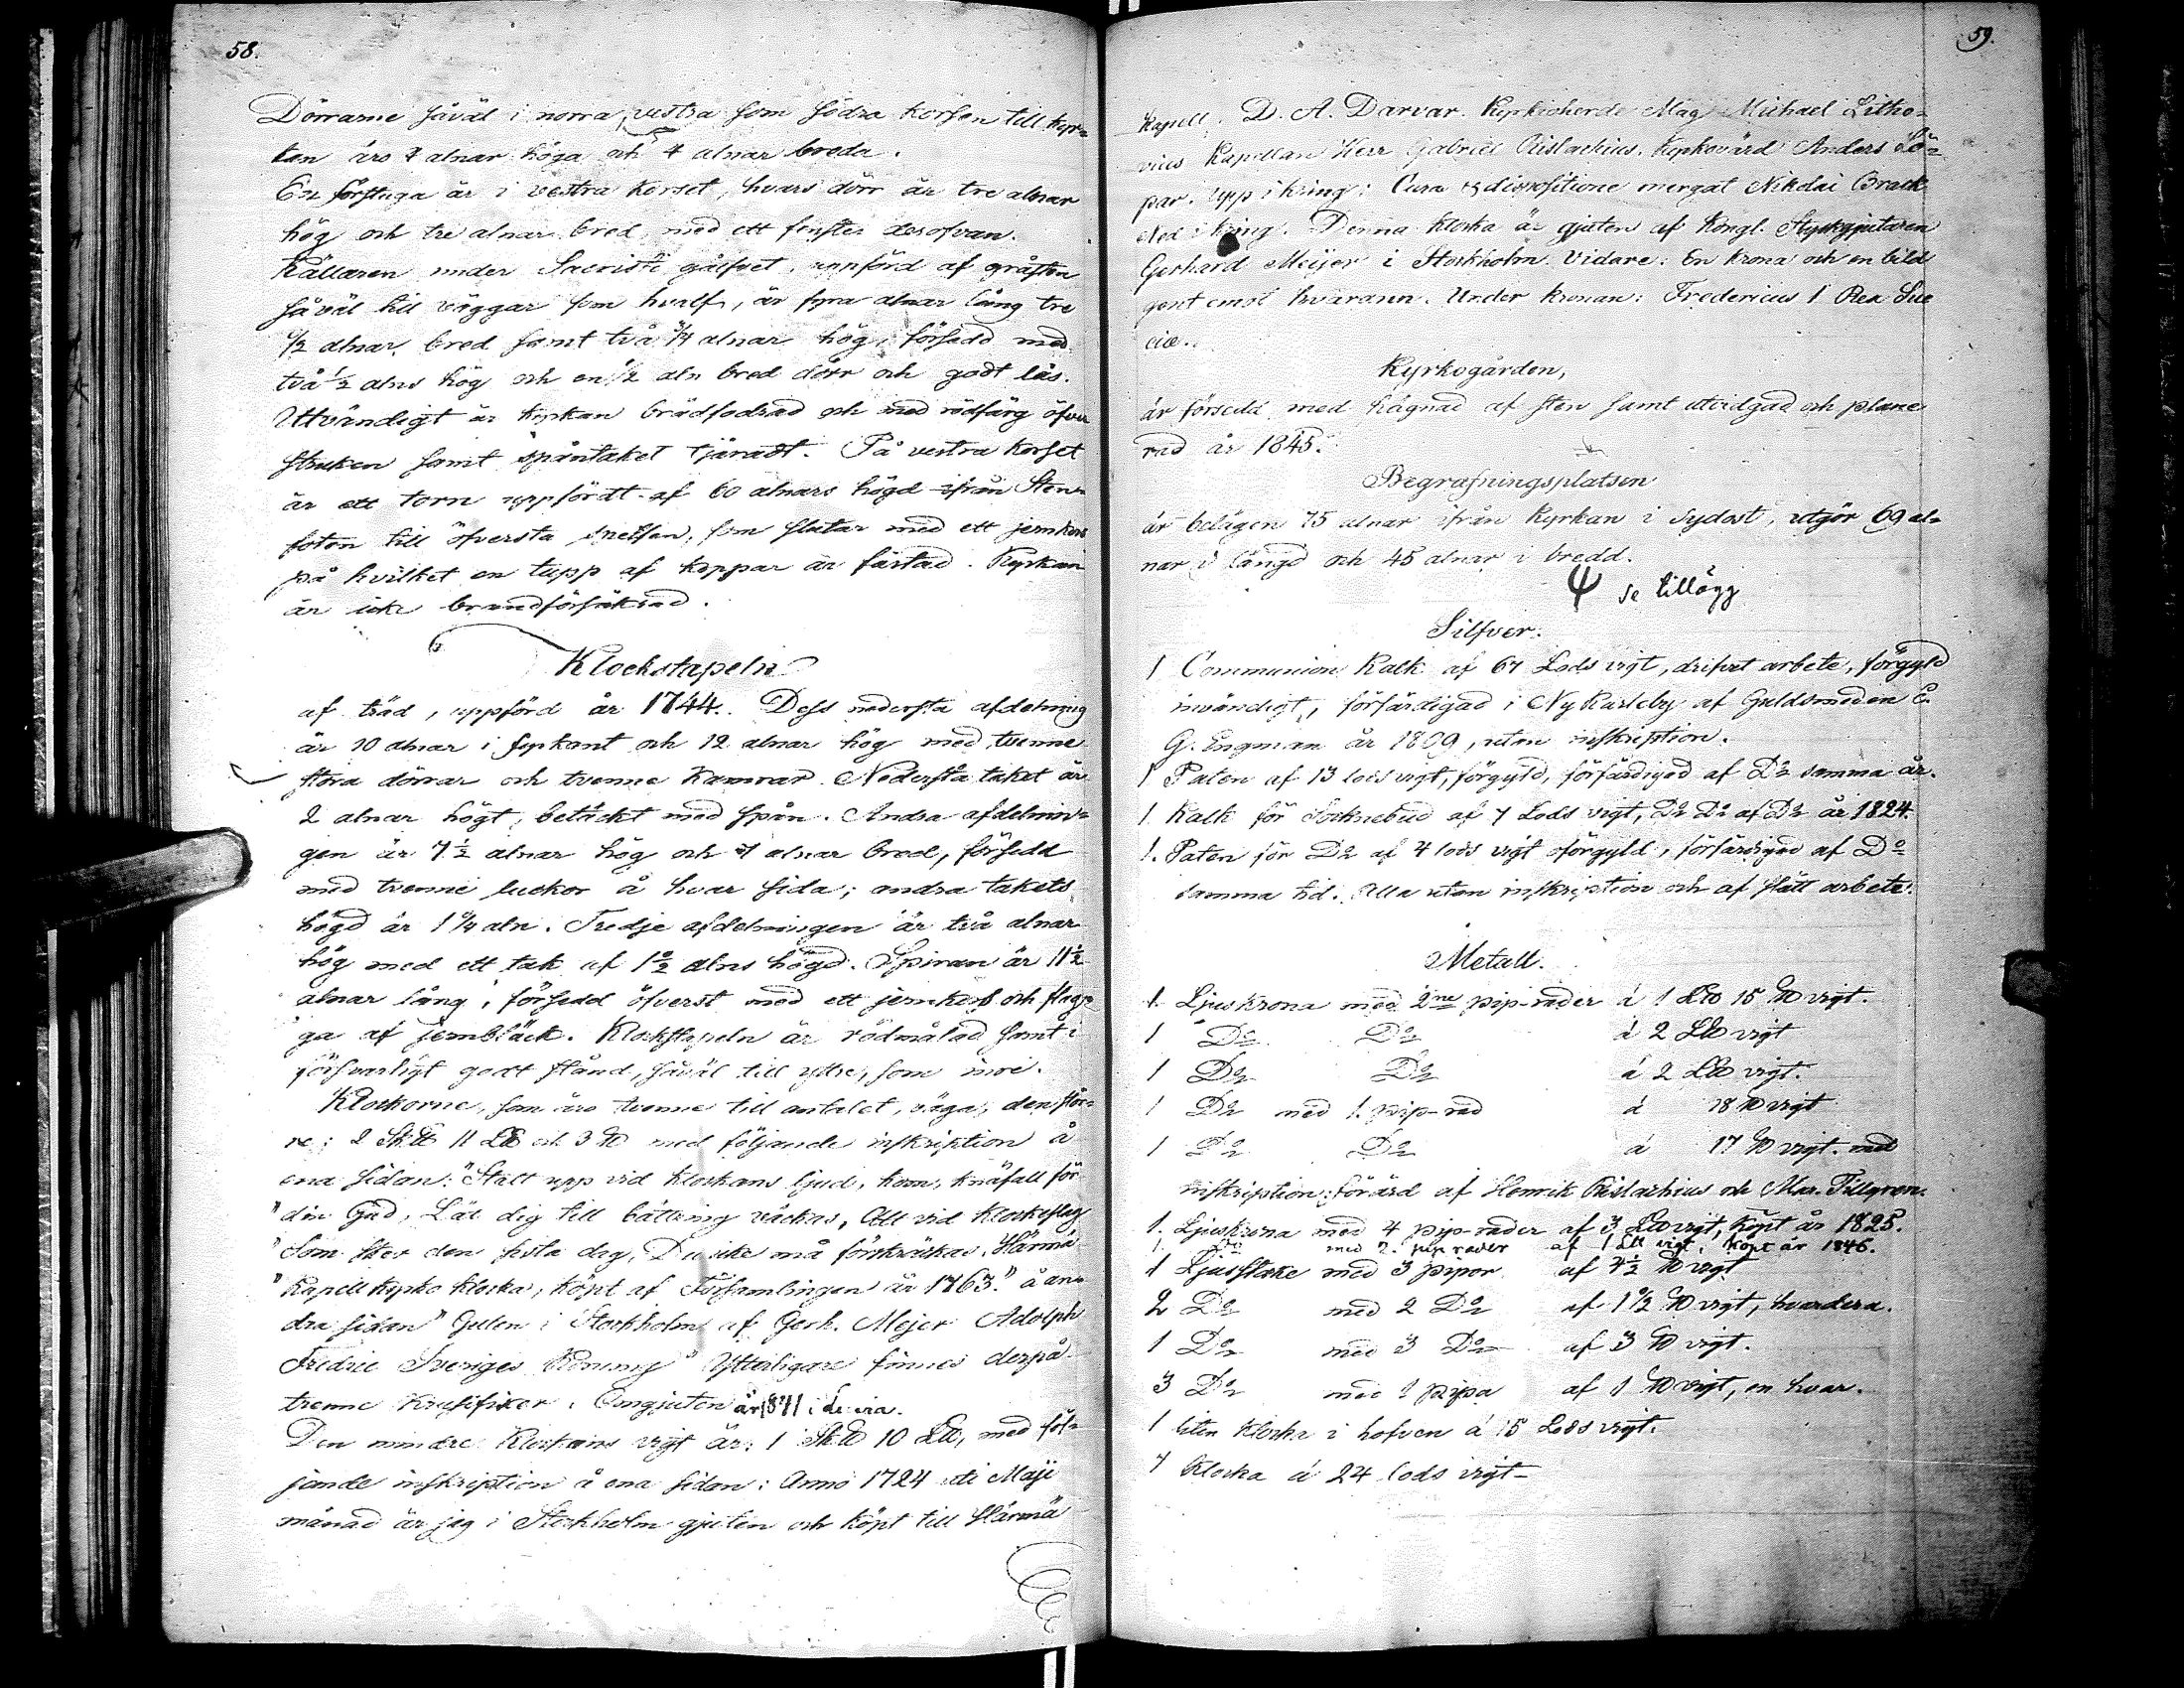 58.
Dörrarne såväl i norra, vestra som södra korsen till kyr=
kan äro 4 alnar höga och 4 alnar breda.
En förstuga är i vestra korset, hvars dörr är tre alnar
hög och tre alnar bred, med ett fenster derofvan.
Källaren under Sacristi gålfvet, uppförd af gråsten
såväl till väggar som hvalf, är fyra alnar lång tre
1/2 alnar bred samt två 3/4 alnar hög, försedd med
två 1/2 alns hög och en 1/2 aln bred dörr och godt lås.
Utvändigt är kyrkan brädfodrad och med rödfärg öfver
struken samt spåntaket tjäradt. På vestra korset
är ett torn uppfördt af 60 alnars högd ifrån Sten=
foten till öfversta spetsen, som slutar med ett jernkors
på hvilket en tupp af koppar är fästad. Kyrkan
är icke brandförsäkrad.
Klockstapeln
af träd, uppförd år 1744. Dess nedersta afdelning
är 10 alnar i fyrkant och 12 alnar hög med tvenne
stora dörrar och tvenne kamrar. Nedersta taket är
2 alnar högt, betäckt med spån. Andra afdelnin=
gen är 7 1/2 alnar hög och 7 alnar bred, försedd
med tvenne luckor å hvar sida; andra takets
högd är 1 1/4 aln. Tredje afdelningen är två alnar
hög med ett tak af 1 1/2 alns högd. Spiran är 11 1/2
alnar lång, försedd öfverst med ett jernkors och flag=
ga af jernbläck. Klockstapeln är rödmålad samt i
försvarligt godt stånd, såväl till yttre, som inre.
Klockorne, som äro tvenne till antalet, väga, den stör=
re: 2 Sk℔ 11 L℔ och 3 ℔ med följande inskription å
ena sidan: "Statt upp vid klockans ljud, kom, knäfall för
"din Gud, Låt dig till bättring väckas, Att vid klockeslag
"Som sker den sista dag, Du icke må förskräckas. Härmä
"Kapell kyrko klocka, köpt af Församlingen år 1763." å an=
dra sidan "Guten i Stockholm af Gerh. Mejer Adolph
Fredric Sveriges Konung" Ytterligare finnes derpå
trenne Krusifixer. Omgjuten år 1871 i
Den mindre klockans vigt är: 1 Sk℔ 10 L℔, med föl=
jande inskription å ena sidan: Anno 1724 uti Maji
månad är jag i Stockholm gjuten och köpt till Härmä
59.
Kapell. D. A. Darvar. Kyrkioherde Mag Michael Litho=
vius Kapellan Herr Gabriel Peislachius. Kyrkovärd Anders Lö=
par. Upp i kring: Cura & dispositione mergat Nikolai Brack
Ned i kring. Denna klocka är gjuten af Kongl. Styckgjutaren
Gerhard Meijer i Stockholm. Vidare: En krona och en bild
gent emot hvarann. Under kronan: Fredericus 1 Rex Sue
ciæ.
Kyrkogården,
är försedd med hägnad af sten samt utvidgad och plane
rad år 1845.
Begrafningsplatsen
är belägen 75 alnar ifrån Kyrkan i Sydost, utgör 69 al=
nar i längd och 45 alnar i bredd.
Ψ se tillägg
Silfver.
1 Communion Kalk af 67 Lods vigt, drifvet arbete, förgyld
invändigt, förfärdigad i Ny Karleby af Guldsmeden C.
G. Engman år 1809, utan inskription.
1 Patén af 13 lods vigt, förgyld, förfärdigad af Do samma år.
1. Kalk för Socknebud af 7 Lods vigt, Do Do af Do år 1824.
1. Paten för Do af 4 lods vigt oförgyld, förfärdigad af Do
samma tid. Alla utan inskription och af slätt arbete.
Metall.
1. Ljuskrona med 2ne pip-rader á 1 L℔ 15 ℔ vigt.
1 Do Do á 2 L℔ vigt
1 Do Do á 2 L℔ vigt.
1 Do med 1. pip-rad á 18 ℔ vigt
1 Do Do á 17 ℔ vigt. med
inskription: förärd af Henrik Peislachius och Mar. Tillgren.
1. Ljuskrona med 4 pip-rader af 3 L℔ vigt, köpt år 1825.
1. do med 2. pip rader af 1 L℔ vigt, köpt år 1846.
1 Ljusstake med 3 pipor af 4 1/2 ℔ vigt
2 Do med 2 Do af 1 1/2 ℔ vigt, hvardera.
1 Do med 3 Do af 3 ℔ vigt.
3 Do med 1 pipa af 1 ℔ vigt, en hvar.
1 liten klocka i hofven á 15 Lods vigt.
1 Klocka á 24 lods vigt